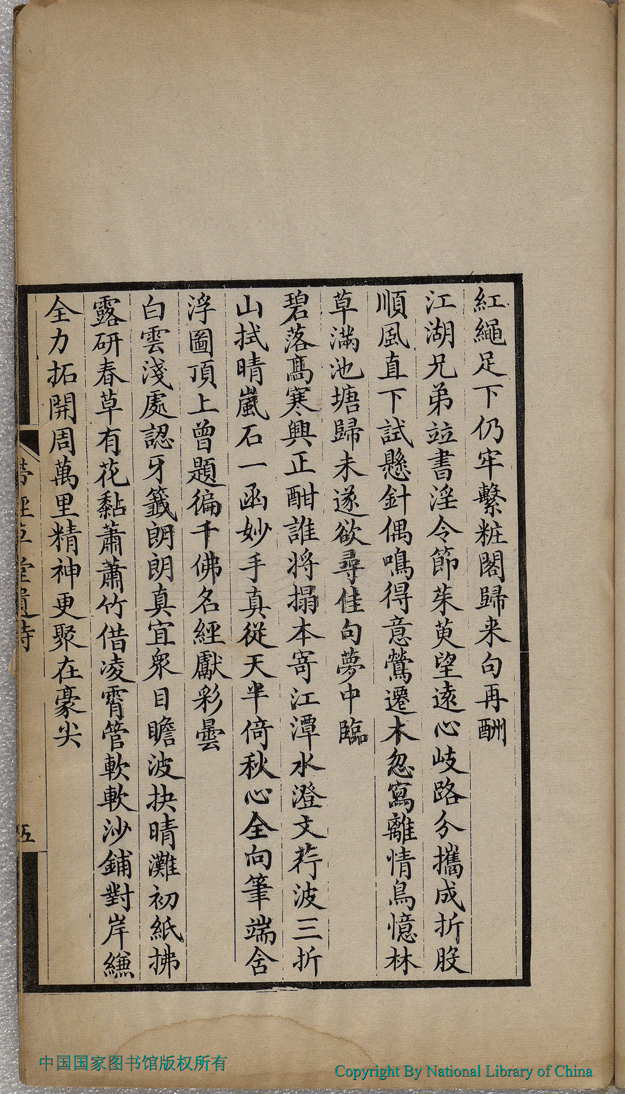 紅繩足下仍牢繫粧閣歸来句再酬
江湖兄弟竝書淫令節茱萸望遠心歧路分攜成折股
順風直下試懸針偶鳴得意鶯遷木忽寫離情鳥憶林
草滿池塘歸未遂欲尋佳句夢中臨
碧落髙寒興正酣誰將搨本寄江潭水澄文荇波三折
山拭晴嵐石一函妙手真從天半倚秋心全向筆端含
浮圖頂上曾題徧千佛名經獻彩曇
白雲淺處認牙籤朗朗真宜衆目瞻波抉晴灘初紙拂
露研春草有花黏蕭蕭竹借凌霄管軟軟沙鋪對岸縑
全力拓開周萬里精神更聚在豪尖
帶經草堂遺詩
五
中国国家图书馆版权所有
Copyright By National Library of China